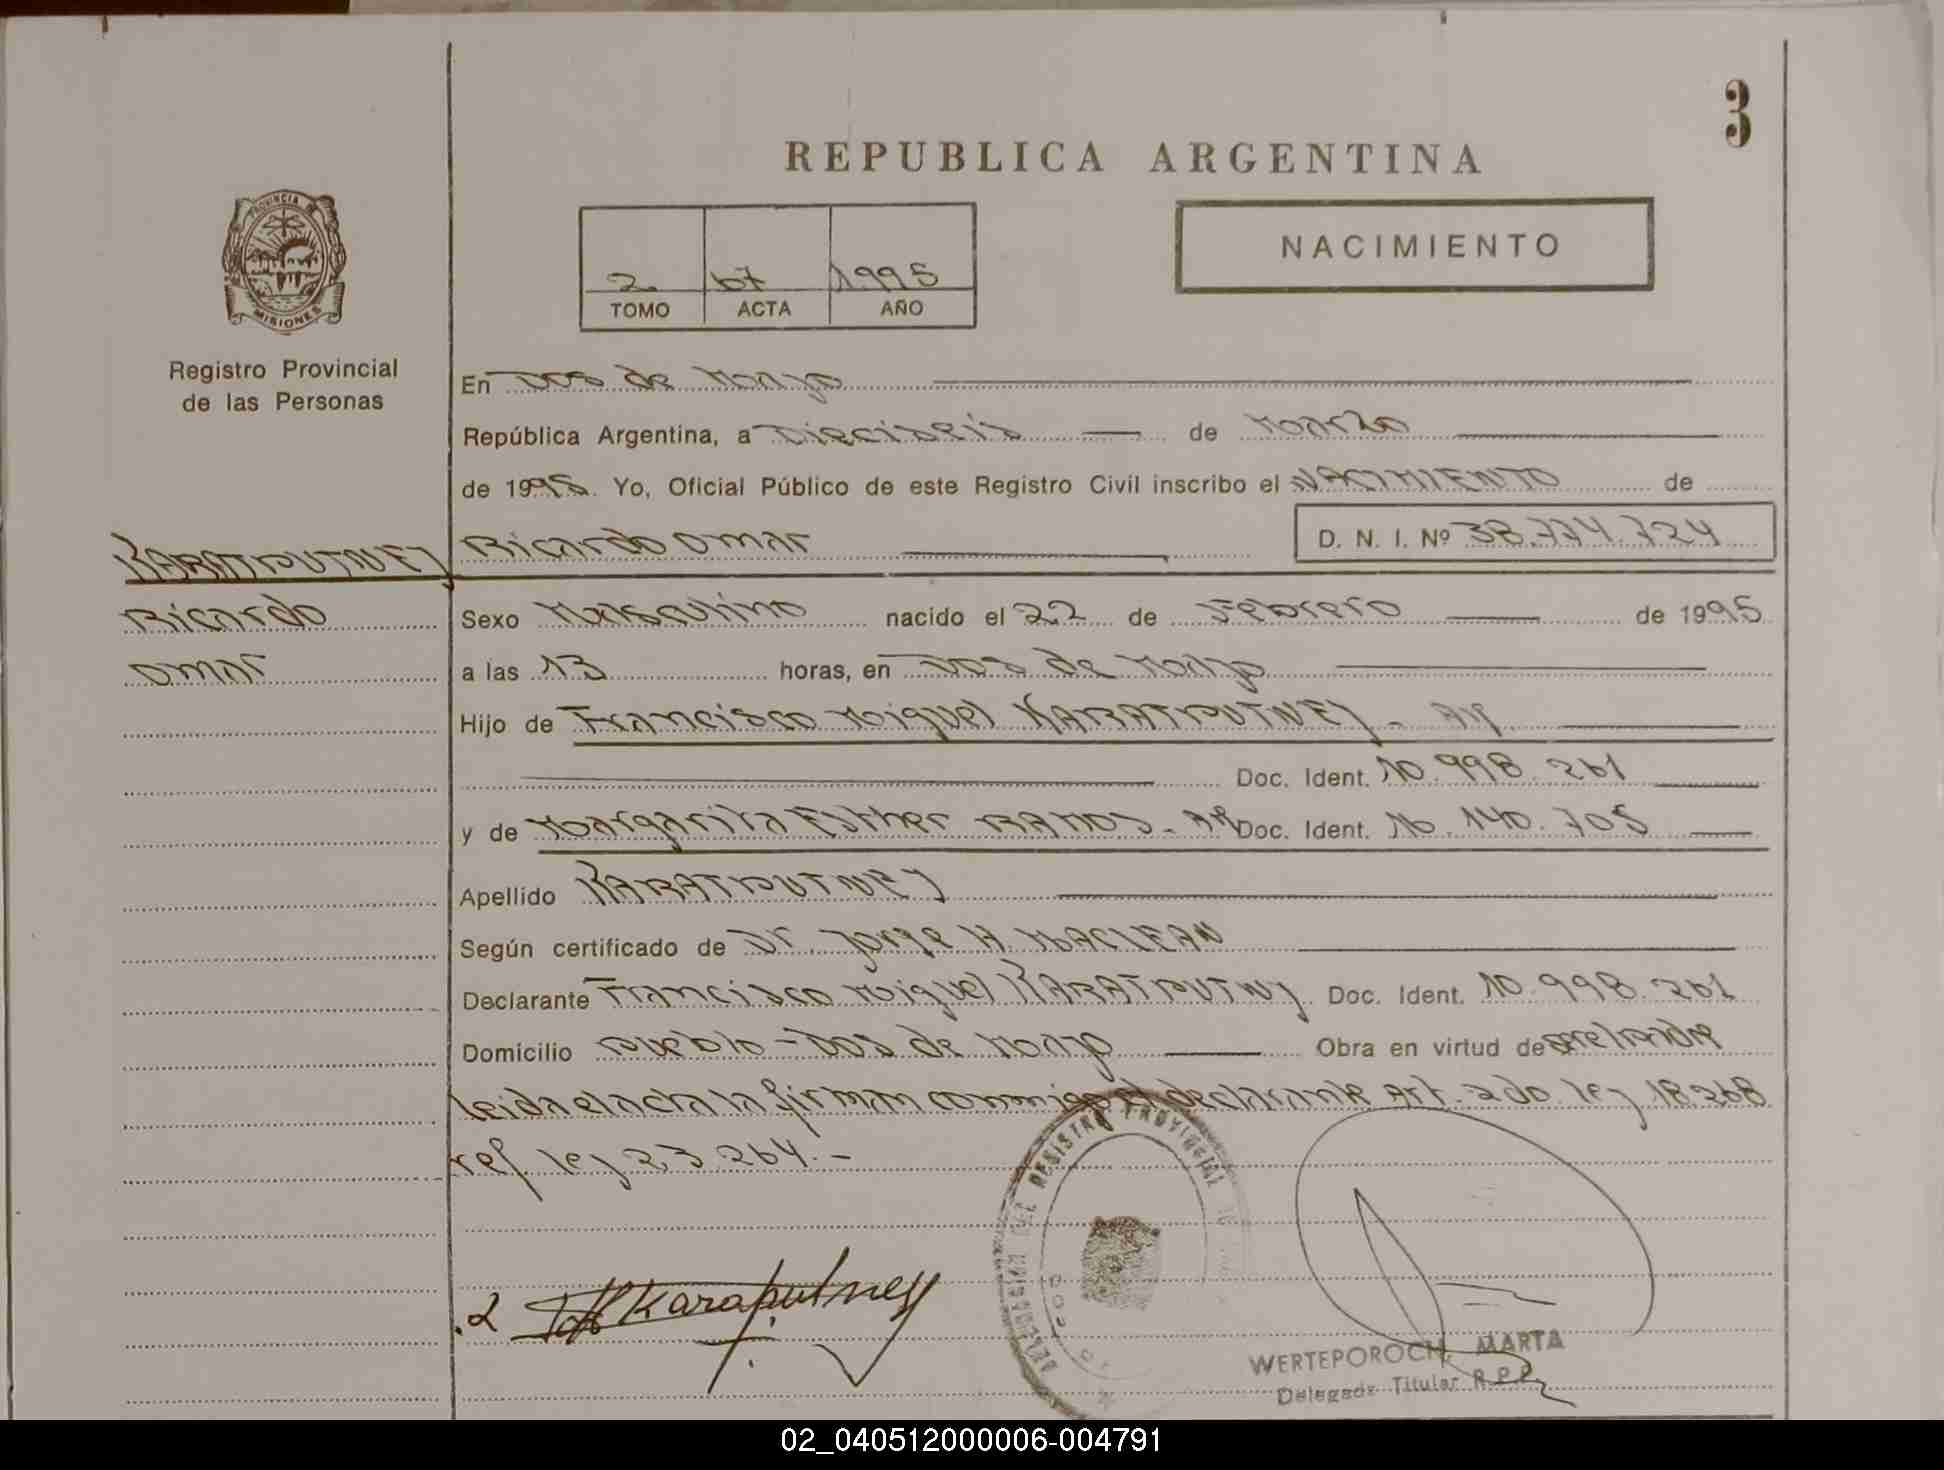 3
REPUBLICA ARGENTINA
PROVINCIA DE
MISIONES
Registro Provincial
de las Personas
2 67 1995
TOMO ACTA AÑO
NACIMIENTO
En Dos de Mayo
República Argentina, a Dieciseis de Marzo
de 1995. Yo, Oficial Público de este Registro Civil inscribo el NACIMIENTO de
KARATPUTNEY Ricardo Omar D. N. I. Nº 38.774.724
Ricardo
Omar
Sexo Masculino nacido el 22 de Febrero de 1995
a las 13 horas, en Dos de Mayo
Hijo de Francisco Miguel KARATPUTNEY - Arg.
Doc. Ident. 10.998.261
y de Margarita Esther RAMOS - Arg Doc. Ident. 16.140.705
Apellido KARATPUTNEY
Según certificado de Dr. Jorge H. MACLEAN
Declarante Francisco Miguel KARATPUTNY Doc. Ident. 10.998.261
Domicilio Pueblo - Dos de Mayo Obra en virtud de ser el padre
leida el acta la firman conmigo el declarante Art. 2do. ley 18.268
ref. ley 23.264.-
REGISTRO PROVINCIAL
Karaputney
WERTEPOROCH, MARTA
Delegada Titular R.P.P.
02_040512000006-004791